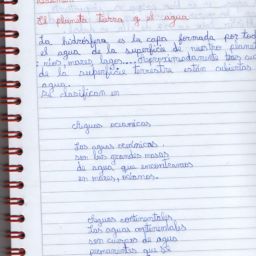 El planeta tierra y el agua
La hidrósfera es la capa formada por tod
el agua de la superficie de nuestro planet
ríos, mares, lagos.... Aproximadamente tres cu
de la superficie terrestre están cubiertas
agua.
Se clasifican en
Aguas oceanicas
Las aguas oceánicas,
son las grandes masas
de agua que encontramos
en mares, océanos.
Aguas continentales
Las aguas continentales
son cuerpos de agua
permanentes que se